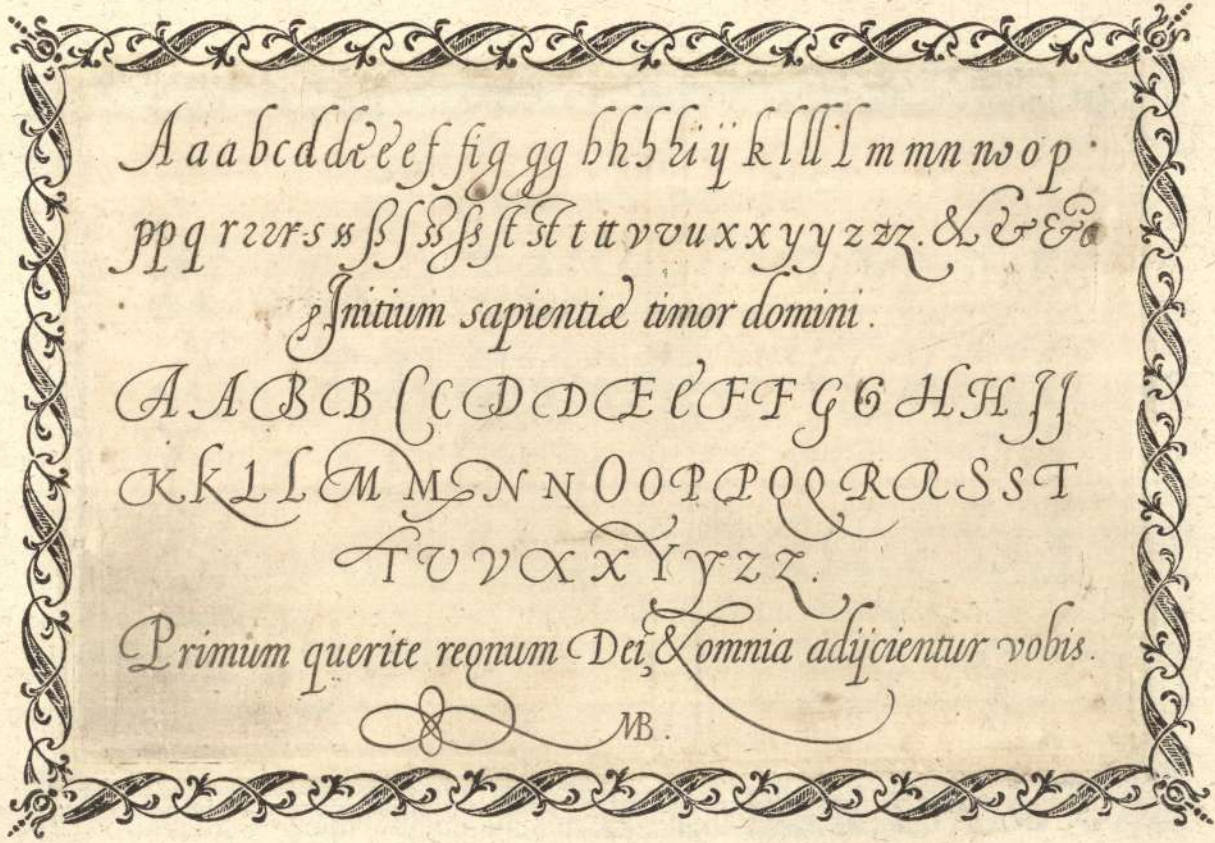 A a a b c d d de e e f ffi g gg b h h h i ij k l ll l m m n n w o p
pp p q r r r r s ss ß ſ ss ſs ſt st t tt v v u x x y y z z z. & & &
Initium sapientiæ timor domini.
A A B B C C D D E E F F G G H H J J
K K L L M M N N O O P P Q Q R R S S T
T V V X X Y Y Z Z.
Primum querite regnum Dei, & omnia adijcientur vobis.
MB.